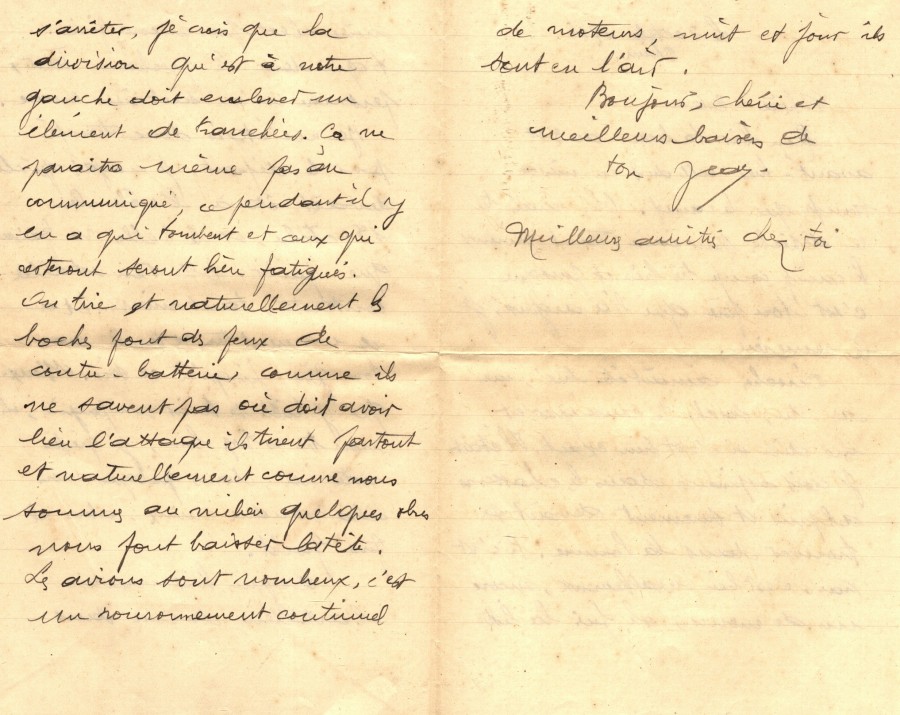 s'arrêter, je crois que la
division qu'est à notre
gauche doit enlever un
élément de tranchées. Ça ne
paraitra même pas au
communiqué, cependant il y
en a qui tombent et ceux qui
resteront seront bien fatigués.
On tire et naturellement les
boches font des feux de
contre-batterie, comme ils
ne savent pas où doit avoir
lieu l'attaque ils tirent partout
et naturellement comme nous
sommes au milieu quelques obus
nous font baisser la tête.
Les avions sont nombreux, c'est
un ronronnement continuel
de moteurs, nuit et jour ils
sont en l'air.
Bonjour, chérie et
meilleurs baisers de
ton Jean.
Meilleures amitiés chez toi